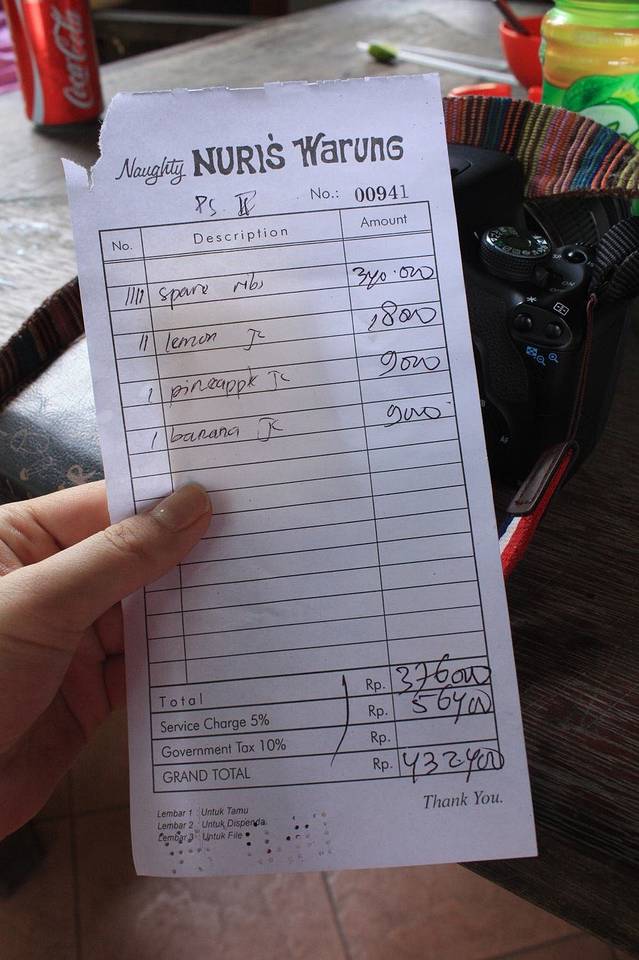 Coca-Cola
Naughty NURI'S Warung
No.: 00941
No. Description Amount
IIII spare ribs 340.000
II lemon Jc 18000
I pineapple Jc 9000
I banana Jc 9000
Total Rp. 376000
Service Charge 5% Rp. 56400
Government Tax 10% Rp.
GRAND TOTAL Rp. 432400
Thank You.
Lembar 1 : Untuk Tamu
Lembar 2 : Untuk Dispenda
Lembar 3 : Untuk File